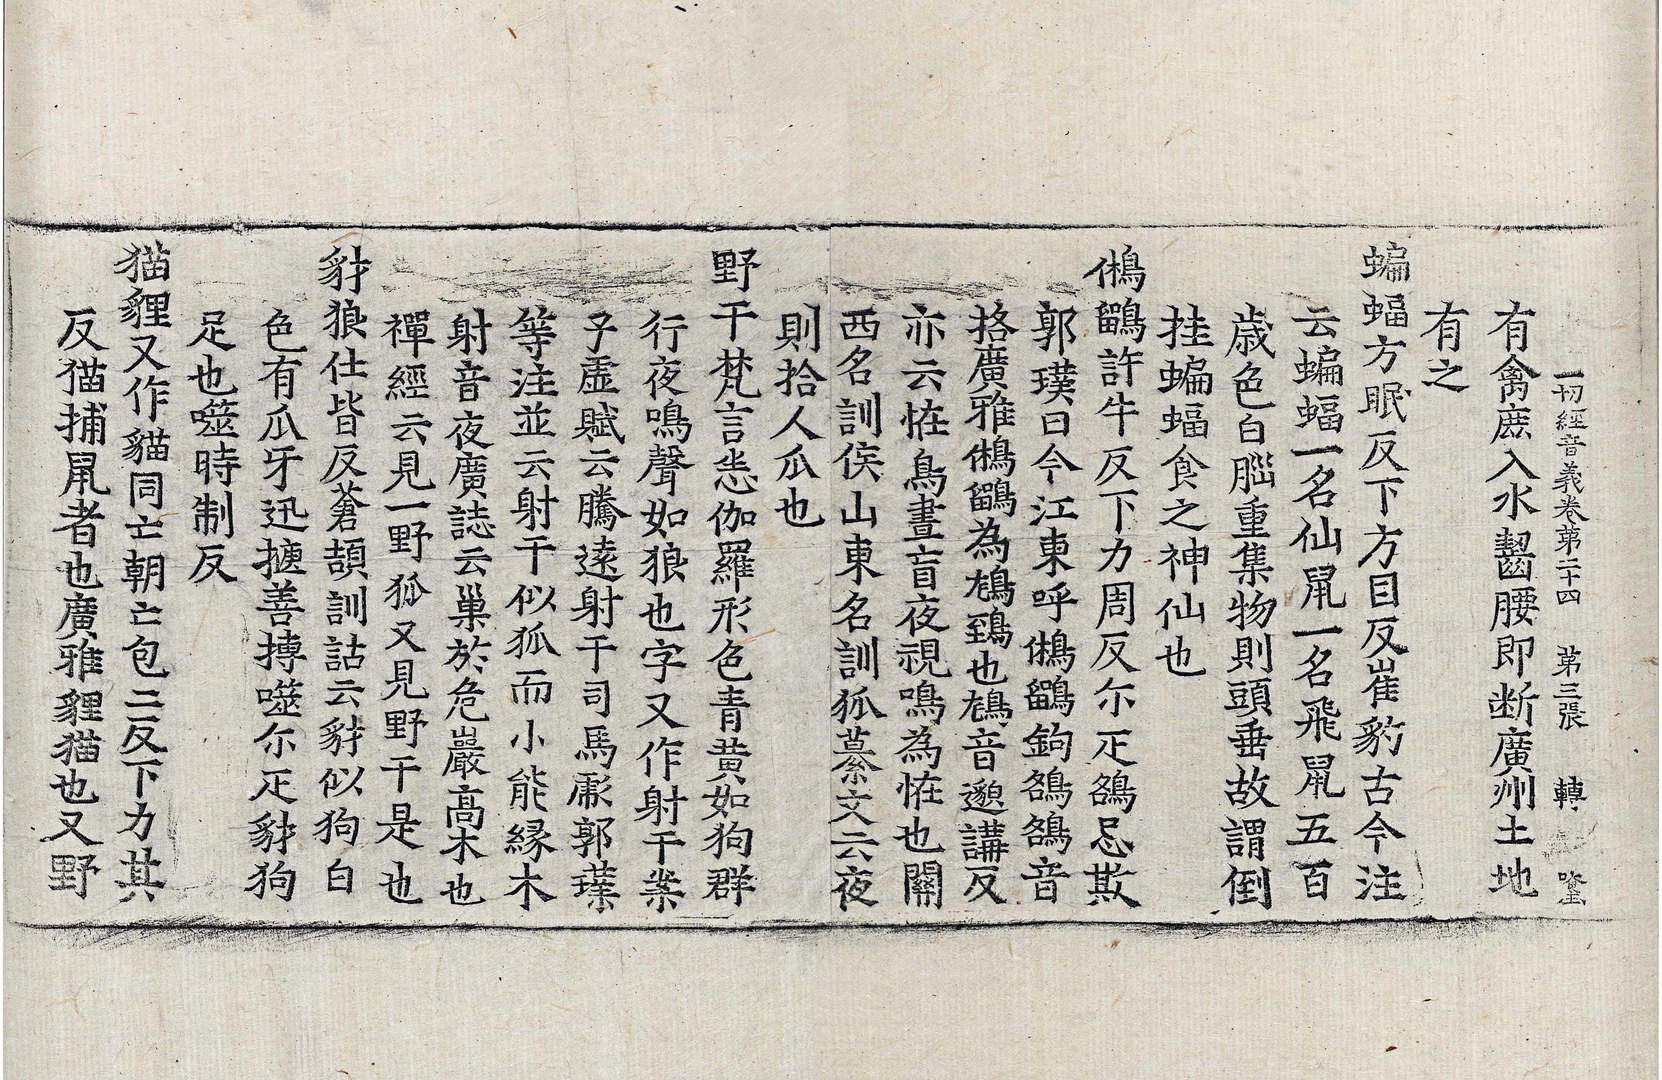 一切經音義卷第二十四 第三張 轉
有禽䴢入水齧腰即断廣州土地
有之
蝙蝠方眠反下方目反崔豹古今注
云蝙蝠一名仙鼠一名飛鼠五百
歳色白腦重集物則頭垂故謂倒
挂蝙蝠食之神仙也
鵂鶹許牛反下力周反尒疋鵅忌欺
郭璞曰今江東呼鵂鶹鉤鵅鵅音
挌廣雅鵂鶹為鴟鵄也鴟音邈講反
亦云恠鳥晝盲夜視鳴為恠也關
西名訓侯山東名訓狐纂文云夜
則拾人爪也
野干梵言悉伽羅形色青黄如狗群
行夜鳴聲如狼也字又作射干案
子虛賦云騰遠射干司馬彪郭璞
等注並云射干似狐而小能縁木
射音夜廣誌云巢於危巖高木也
禪經云見一野狐又見野干是也
豺狼仕皆反蒼頡訓詁云豺似狗白
色有爪牙迅揵善搏噬尒疋豺狗
足也噬時制反
猫貍又作貓同亡朝亡包二反下力其
反猫捕鼠者也廣雅貍猫也又野